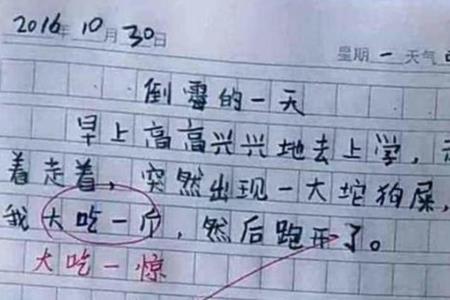 2016年10月30日
星期一 天气
倒霉的一天
早上高高兴兴地去上学，
着走着，突然出现一大坨狗屎，
我大吃一斤，然后跑开了。
大吃一惊